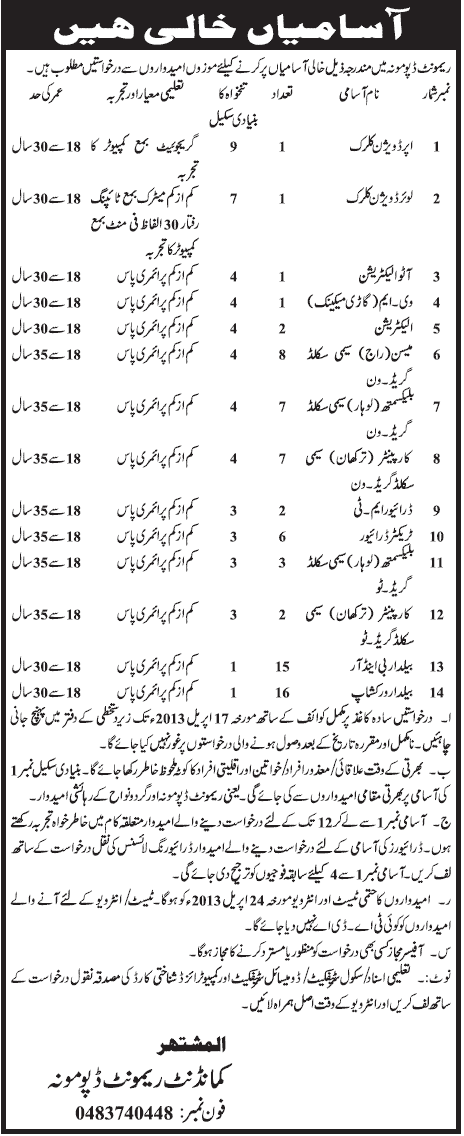 آسامیاں خالی ھیں
ریمونٹ ڈپومونہ میں مندرجہ ذیل خالی آسامیاں پر کرنے کیلئے موزوں امیدواروں سے درخواستیں مطلوب ہیں۔
نمبر شمار نام آسامی تعداد تنخواہ کا تعلیمی معیار اور تجربہ عمر کی حد
بنیادی سکیل
1 اپر ڈویژن کلرک 1 9 گریجوئیٹ بمع کمپیوٹر کا 18 سے 30 سال
تجربہ
2 لوئر ڈویژن کلرک 1 7 کم از کم میٹرک بمع ٹائپنگ 18 سے 30 سال
رفتار 30 الفاظ فی منٹ بمع
کمپیوٹر کا تجربہ
3 آٹو الیکٹریشن 1 4 کم از کم پرائمری پاس 18 سے 30 سال
4 وی۔ایم (گاڑی میکینک) 1 4 کم از کم پرائمری پاس 18 سے 30 سال
5 الیکٹریشن 2 4 کم از کم پرائمری پاس 18 سے 30 سال
6 میسن (راج) سیمی سکلڈ 8 4 کم از کم پرائمری پاس 18 سے 35 سال
گریڈ۔ون
7 بلیکسمتھ (لوہار) سیمی سکلڈ 7 4 کم از کم پرائمری پاس 18 سے 35 سال
گریڈ۔ون
8 کارپینٹر (ترکھان) سیمی 7 4 کم از کم پرائمری پاس 18 سے 35 سال
سکلڈ گریڈ۔ون
9 ڈرائیور ایم۔ٹی 2 3 کم از کم پرائمری پاس 18 سے 35 سال
10 ٹریکٹر ڈرائیور 6 3 کم از کم پرائمری پاس 18 سے 35 سال
11 بلیکسمتھ (لوہار) سیمی سکلڈ 3 3 کم از کم پرائمری پاس 18 سے 35 سال
گریڈ۔ٹو
12 کارپینٹر (ترکھان) سیمی 2 3 کم از کم پرائمری پاس 18 سے 35 سال
سکلڈ گریڈ۔ٹو
13 بیلدار بی اینڈ آر 15 1 کم از کم پرائمری پاس 18 سے 30 سال
14 بیلدار ورکشاپ 16 1 کم از کم پرائمری پاس 18 سے 30 سال
ا۔ درخواستیں سادہ کاغذ پر مکمل کوائف کے ساتھ مورخہ 17 اپریل 2013ء تک زیر دستخطی کے دفتر میں پہنچ جانی
چاہئیں۔ نامکمل اور مقررہ تاریخ کے بعد وصول ہونے والی درخواستوں پر غور نہیں کیا جائے گا۔
ب۔ بھرتی کے وقت علاقائی/معذور افراد/خواتین اور اقلیتی افراد کا کوٹہ ملحوظ خاطر رکھا جائے گا۔ بنیادی سکیل نمبر 1
کی آسامی پر بھرتی مقامی امیدواروں سے کی جائے گی۔ یعنی ریمونٹ ڈپومونہ اور گردونواح کے رہائشی امیدوار۔
ج۔ آسامی نمبر 1 سے لے کر 12 تک کے لئے درخواست دینے والے امیدوار متعلقہ کام میں خاطر خواہ تجربہ رکھتے
ہوں۔ ڈرائیورز کی آسامی کے لئے درخواست دینے والے امیدوار ڈرائیورنگ لائسنس کی نقل درخواست کے ساتھ
لف کریں۔ آسامی نمبر 1 سے 4 کیلئے سابقہ فوجیوں کو ترجیح دی جائے گی۔
ر۔ امیدواروں کا حتمی ٹیسٹ اور انٹرویو مورخہ 24 اپریل 2013ء کو ہوگا۔ ٹیسٹ/انٹرویو کے لئے آنے والے
امیدواروں کو کوئی ٹی اے۔ڈی اے نہیں دیا جائے گا۔
س۔ آفیسر مجاز کسی بھی درخواست کو منظور یا مسترد کرنے کا مجاز ہوگا۔
نوٹ:۔ تعلیمی اسناد/سکول سرٹیفکیٹ/ڈومیسائل سرٹیفکیٹ اور کمپیوٹرائزڈ شناختی کارڈ کی مصدقہ نقول درخواست کے
ساتھ لف کریں اور انٹرویو کے وقت اصل ہمراہ لائیں۔
المشتھر
کمانڈنٹ ریمونٹ ڈپومونہ
فون نمبر: 0483740448